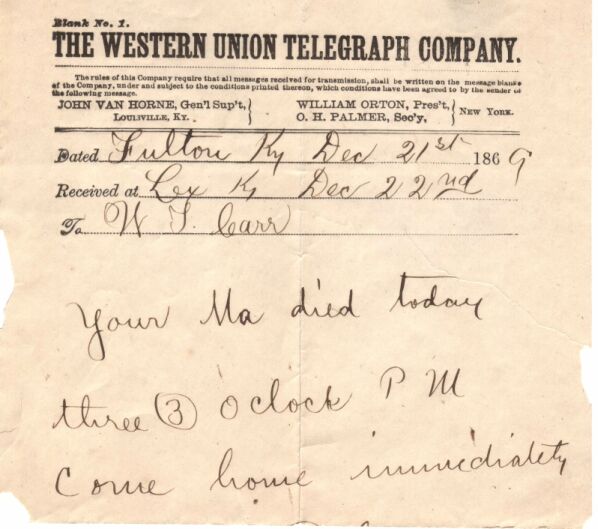 Blank No. 1.
THE WESTERN UNION TELEGRAPH COMPANY.
The rules of this Company require that all messages received for transmission, shall be written on the message blanks
of the Company, under and subject to the conditions printed thereon, which conditions have been agreed to by the sender of
the following message.
JOHN VAN HORNE, Gen'l Sup't,
LOUISVILLE, KY.
WILLIAM ORTON, Pres't,
O. H. PALMER, Sec'y,
NEW YORK.
Dated Fulton Ky Dec 21st 1869
Received at Lex Ky Dec 22nd
To W T. Carr
Your Ma died today
three (3) Oclock P M
Come home immediately